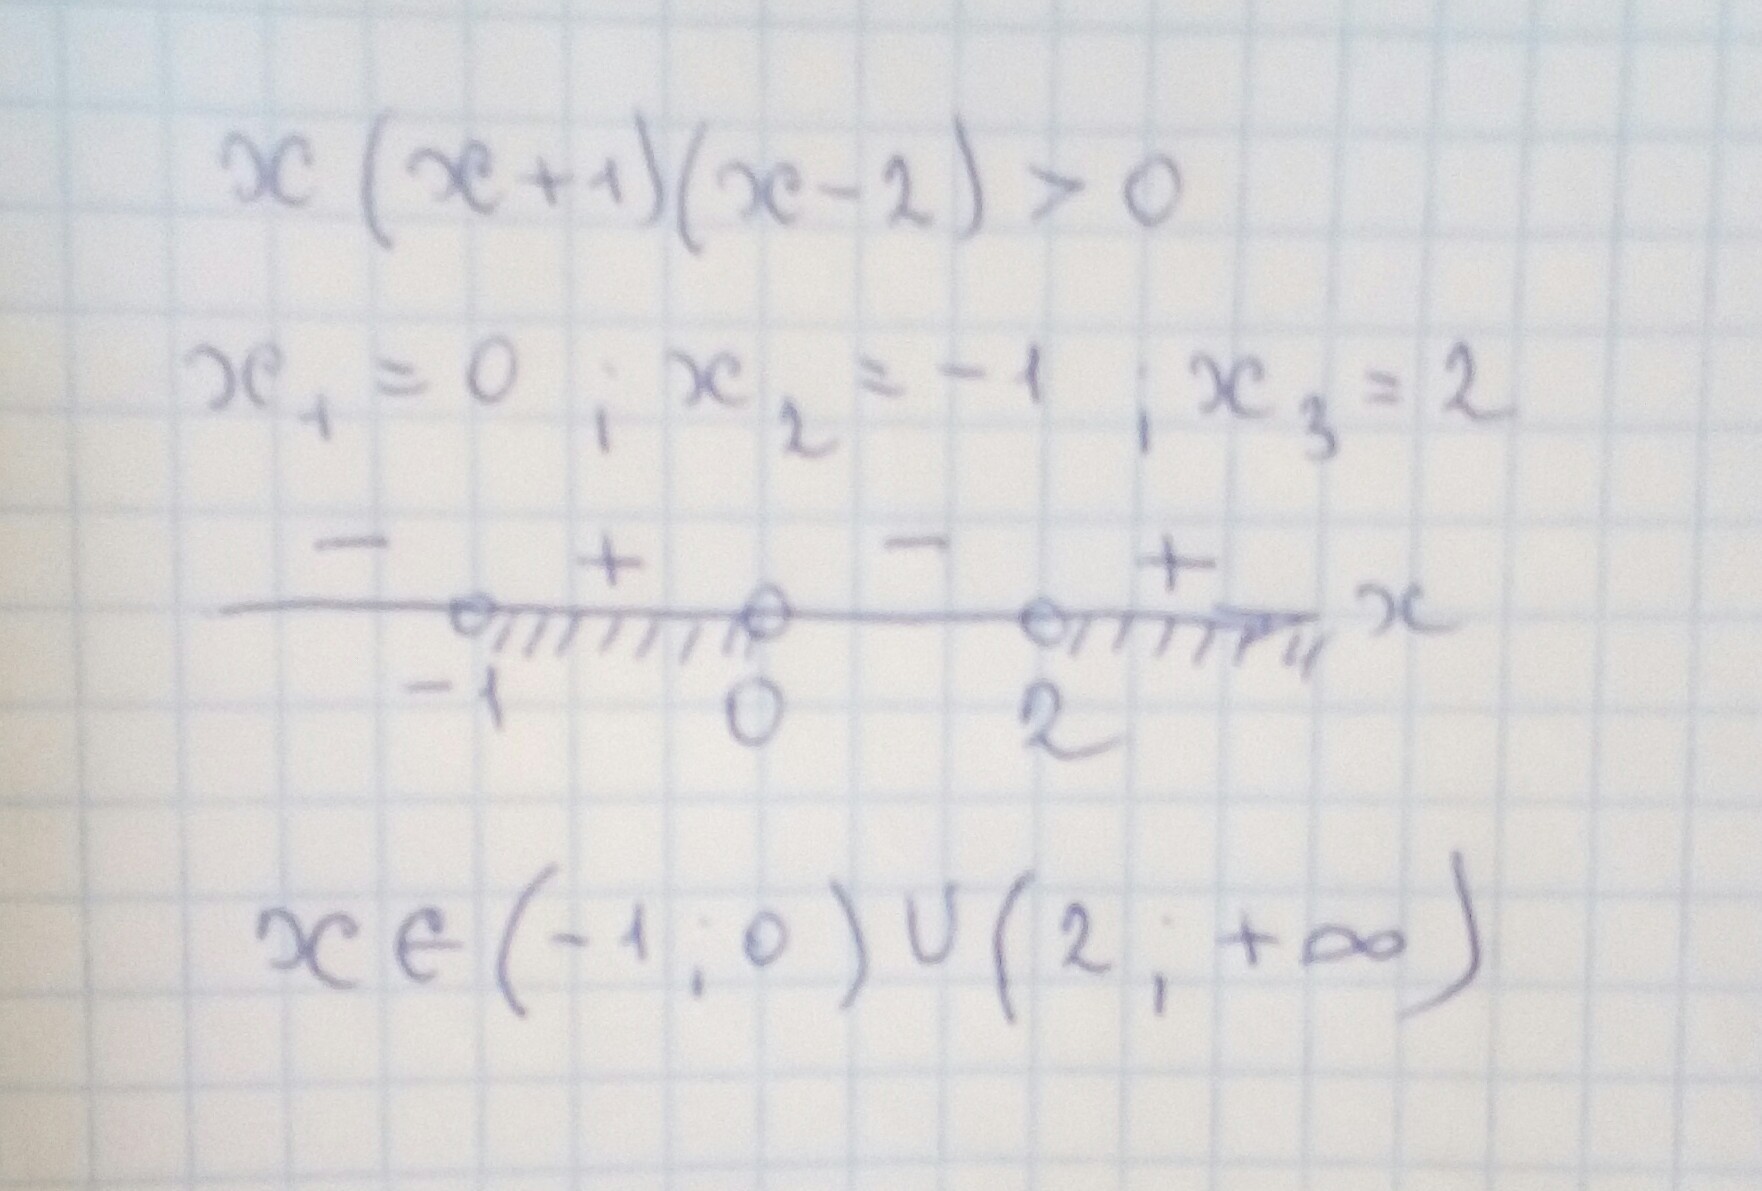 x(x+1)(x-2)>0
x₁=0; x₂=-1; x₃=2
- + - + x
-1 0 2
x∈(-1;0)∪(2;+∞)